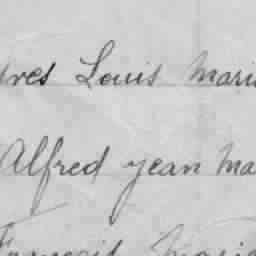 Yves Louis Mari
Alfred Jean Ma